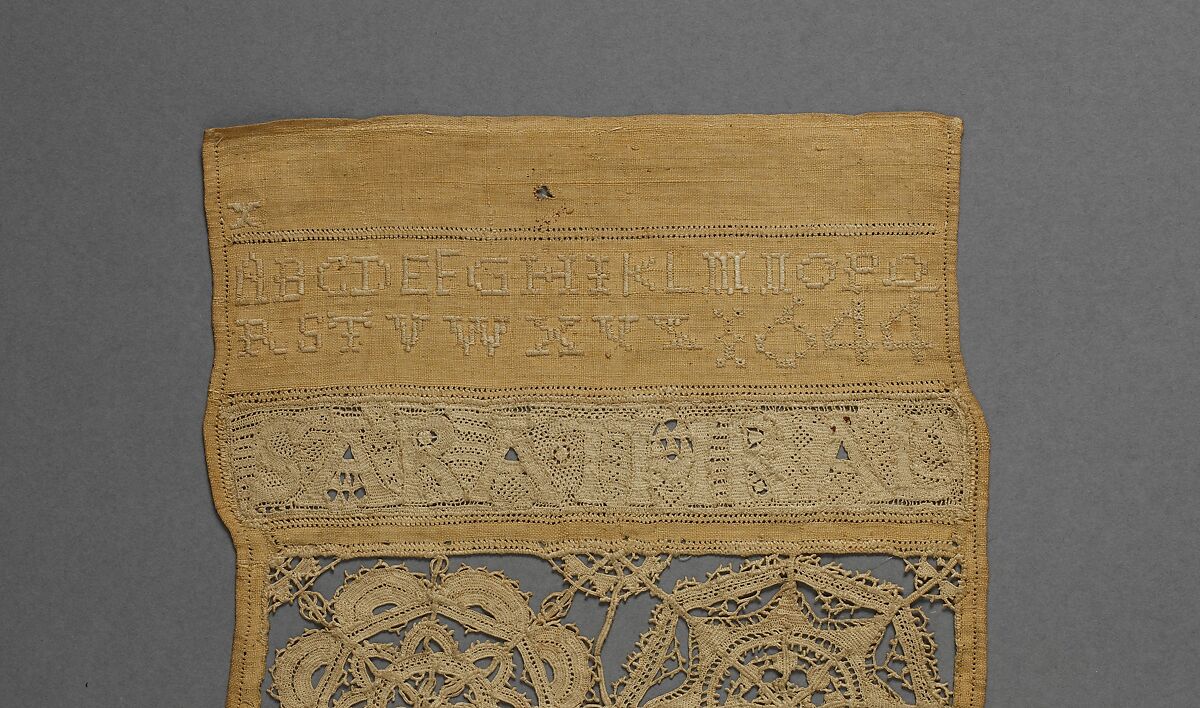 X
ABCDEFGHIKLMNOPQ
RSTVWXYZ 1644
SARATHRAL